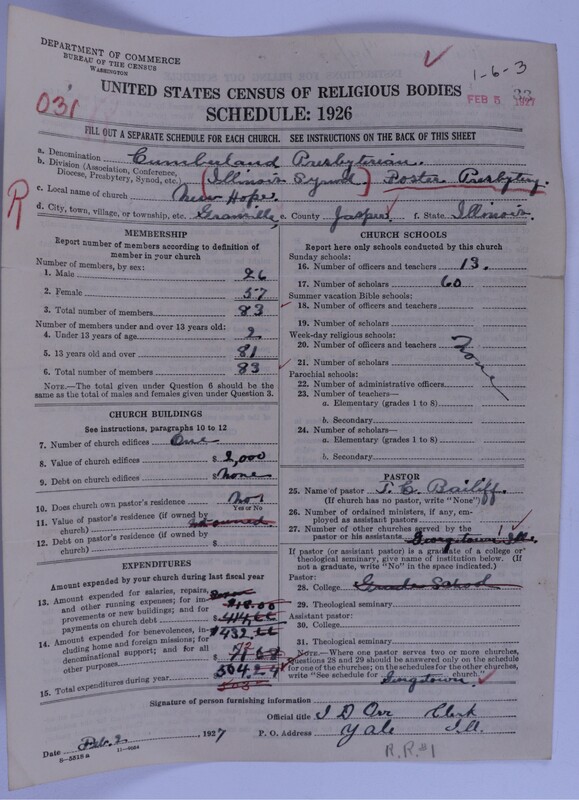 DEPARTMENT OF COMMERCE
BUREAU OF THE CENSUS
WASHINGTON
1-6-3
031
FEB 5 1927
33
UNITED STATES CENSUS OF RELIGIOUS BODIES
SCHEDULE: 1926
FILL OUT A SEPARATE SCHEDULE FOR EACH CHURCH. SEE INSTRUCTIONS ON THE BACK OF THIS SHEET
a. Denomination Cumberland Presbyterian.
b. Division (Association, Conference, Diocese, Presbytery, Synod, etc.) (Illinois Synod) Foster Presbytery.
R
c. Local name of church New Hope.
d. City, town, village, or township, etc. Granville, e. County Jasper f. State Illinois.
MEMBERSHIP
Report number of members according to definition of member in your church
Number of members, by sex:
1. Male 26
2. Female 57
3. Total number of members 83
Number of members under and over 13 years old:
4. Under 13 years of age 2
5. 13 years old and over 81
6. Total number of members 83
NOTE.—The total given under Question 6 should be the same as the total of males and females given under Question 3.
CHURCH BUILDINGS
See instructions, paragraphs 10 to 12
7. Number of church edifices One
8. Value of church edifices $ 2,000
9. Debt on church edifices $ None
10. Does church own pastor's residence No!
Yes or No
11. Value of pastor's residence (if owned by church) $
12. Debt on pastor's residence (if owned by church) $
EXPENDITURES
Amount expended by your church during last fiscal year
13. Amount expended for salaries, repairs, and other running expenses; for improvements or new buildings; and for payments on church debt $
14. Amount expended for benevolences, including home and foreign missions; for denominational support; and for all other purposes $432
15. Total expenditures during year 504.24
CHURCH SCHOOLS
Report here only schools conducted by this church
Sunday schools:
16. Number of officers and teachers 13.
17. Number of scholars 60
Summer vacation Bible schools:
18. Number of officers and teachers
19. Number of scholars
Week-day religious schools:
20. Number of officers and teachers None
21. Number of scholars
Parochial schools:
22. Number of administrative officers
23. Number of teachers—
a. Elementary (grades 1 to 8)
b. Secondary
24. Number of scholars—
a. Elementary (grades 1 to 8)
b. Secondary
PASTOR
25. Name of pastor T. C. Bailiff.
(If church has no pastor, write "None")
26. Number of ordained ministers, if any, employed as assistant pastors
27. Number of other churches served by the pastor or his assistants 1 Georgetown, Ill.
If pastor (or assistant pastor) is a graduate of a college or theological seminary, give name of institution below. (If not a graduate, write "No" in the space indicated.)
Pastor:
28. College Grade School
29. Theological seminary
Assistant pastor:
30. College
31. Theological seminary
NOTE.—Where one pastor serves two or more churches, Questions 28 and 29 should be answered only on the schedule for one of the churches; on the schedules for the other churches, write "See schedule for Georgetown church."
Signature of person furnishing information
Official title I D Orr Clerk
Date Feb. 2, 1927 P. O. Address Yale Ill.
R.R.#1